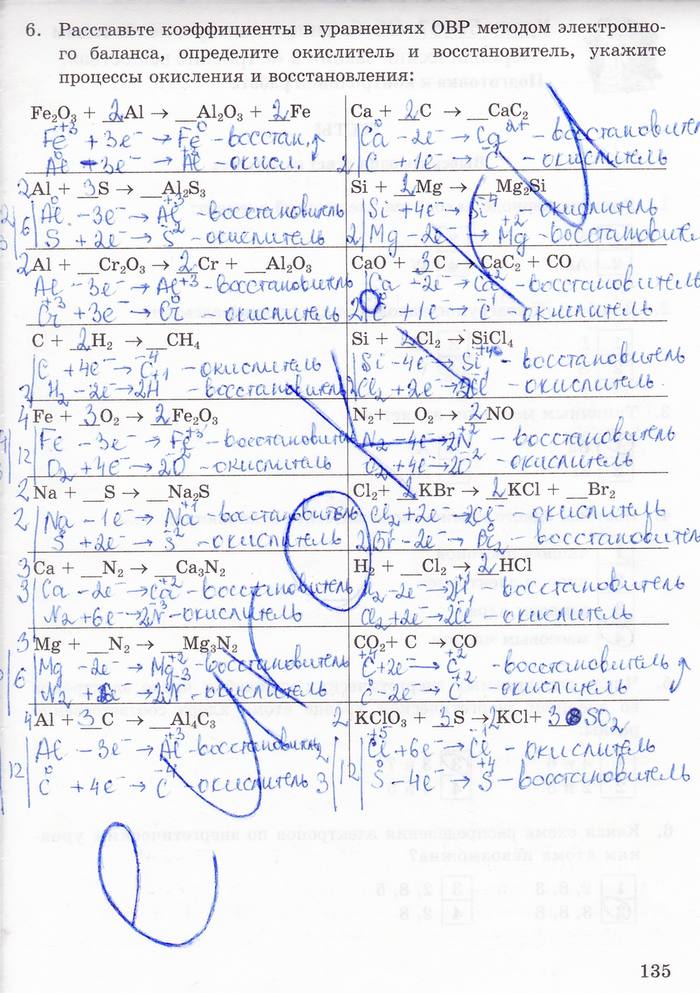 6. Расставьте коэффициенты в уравнениях ОВР методом электронно-
го баланса, определите окислитель и восстановитель, укажите
процессы окисления и восстановления:
Fe₂O₃ + 2Al → __Al₂O₃ + 2Fe
Fe⁺³ + 3e⁻ → Fe⁰ - восстан.
Al⁰ - 3e⁻ → Al⁺³ - окисл.
Ca + 2C → __CaC₂
Ca⁰ - 2e⁻ → Ca²⁺ - восстановитель
2 | C⁰ + 1e⁻ → C⁻ - окислитель
2Al + 3S → __Al₂S₃
6 | Al⁰ - 3e⁻ → Al⁺³ - восстановитель
S⁰ + 2e⁻ → S⁻² - окислитель
Si + 2Mg → __Mg₂Si
Si + 4e⁻ → Si⁻⁴ - окислитель
2 | Mg - 2e⁻ → Mg⁺² - восстановител
2Al + __Cr₂O₃ → 2Cr + __Al₂O₃
Al - 3e⁻ → Al⁺³ - восстановитель
Cr⁺³ + 3e⁻ → Cr⁰ - окислитель
CaO + 3C → CaC₂ + CO
Ca + 2e⁻ → Ca⁺² - восстановитель
2 | C⁰ + 1e⁻ → C⁻¹ - окислитель
C + 2H₂ → __CH₄
C + 4e⁻ → C⁻⁴ - окислитель
2 | H₂ - 2e⁻ → 2H⁺¹ - восстановитель
Si + 2Cl₂ → SiCl₄
Si - 4e⁻ → Si⁺⁴ - восстановитель
2 | Cl₂ + 2e⁻ → 2Cl⁻ - окислитель.
4Fe + 3O₂ → 2Fe₂O₃
12 | Fe - 3e⁻ → Fe⁺³ - восстановитель
O₂ + 4e⁻ → 2O⁻² - окислитель
N₂ + __O₂ → 2NO
N₂ - 4e⁻ → 2N⁺² - восстановитель
O₂ + 4e⁻ → 2O⁻² - окислитель
2Na + __S → __Na₂S
2 | Na - 1e⁻ → Na⁺¹ - восстановитель
S + 2e⁻ → S⁻² - окислитель
Cl₂ + 2KBr → 2KCl + __Br₂
Cl₂ + 2e⁻ → 2Cl⁻ - окислитель
- восстановитель
3Ca + __N₂ → __Ca₃N₂
3 | Ca - 2e⁻ → Ca⁺² - восстановитель
N₂ + 6e⁻ → 2N⁻³ - окислитель
H₂ + __Cl₂ → 2HCl
H₂ - 2e⁻ → 2H⁺ - восстановитель
Cl₂ + 2e⁻ → 2Cl⁻ - окислитель
3Mg + __N₂ → __Mg₃N₂
6 | Mg - 2e⁻ → Mg⁺² - восстановитель
N₂ + 6e⁻ → 2N⁻³ - окислитель
CO₂ + C → CO
C⁺⁴ + 2e⁻ → C⁺² - восстановитель
C⁰ - 2e⁻ → C⁺² - окислитель
4Al + 3C → __Al₄C₃
12 | Al - 3e⁻ → Al⁺³ - восстановитель
C⁰ + 4e⁻ → C⁻⁴ - окислитель
2KClO₃ + 3S → 2KCl + 3SO₂
2 | 12 | Cl⁺⁵ + 6e⁻ → Cl⁻¹ - окислитель
3 | S⁰ - 4e⁻ → S⁺⁴ - восстановитель
135